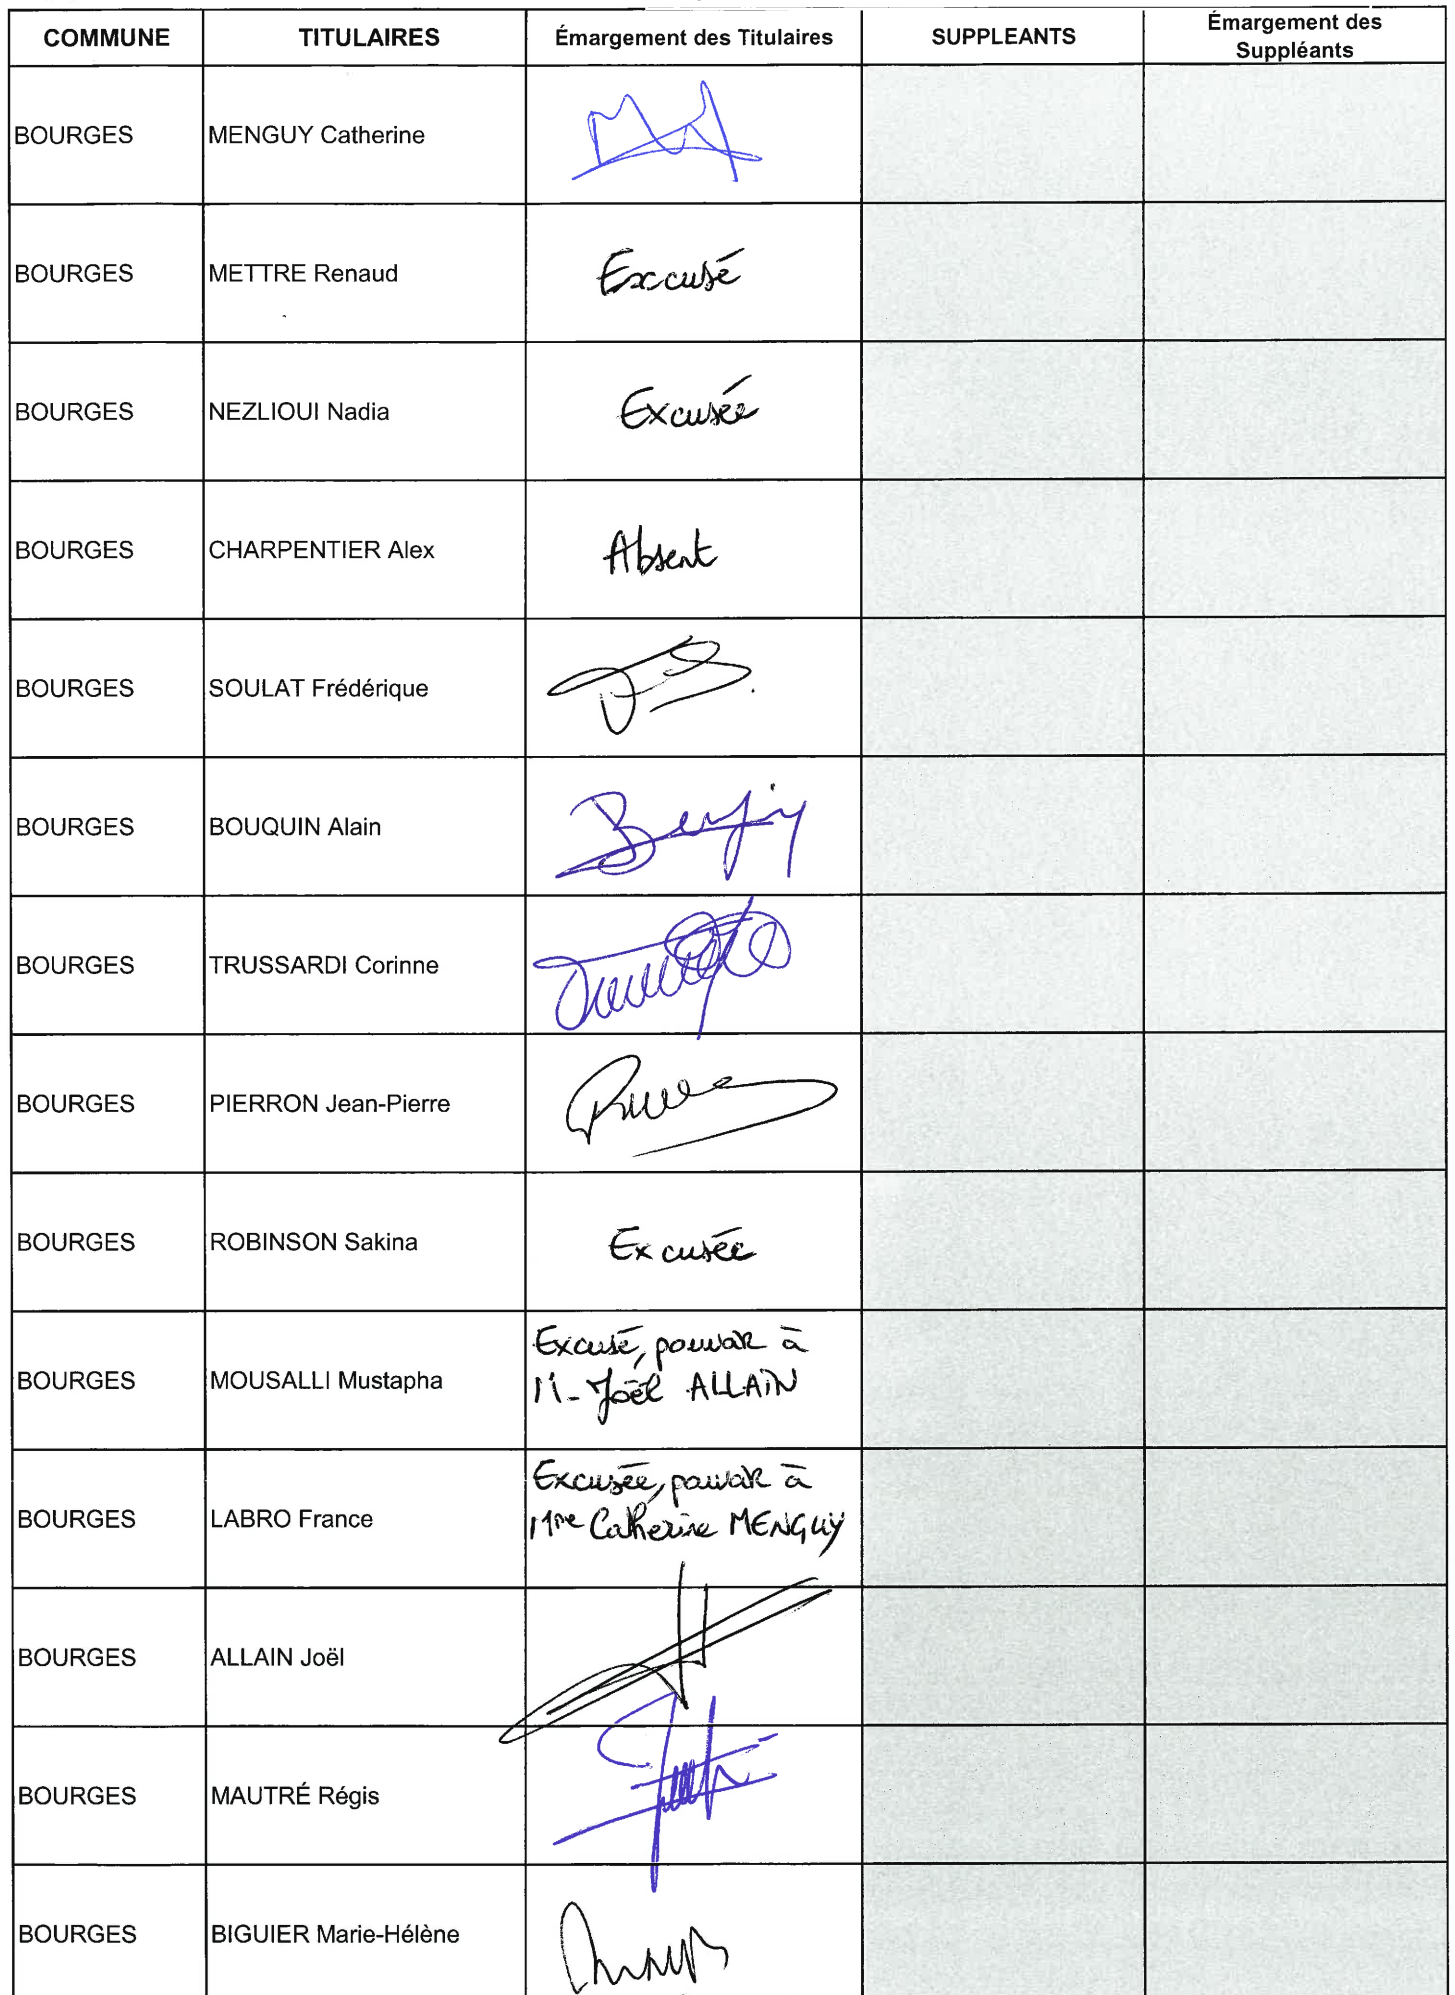 COMMUNE TITULAIRES Émargement des Titulaires SUPPLEANTS Émargement des
Suppléants
BOURGES MENGUY Catherine
BOURGES METTRE Renaud Excusé
BOURGES NEZLIOUI Nadia Excusée
BOURGES CHARPENTIER Alex Absent
BOURGES SOULAT Frédérique
BOURGES BOUQUIN Alain
BOURGES TRUSSARDI Corinne
BOURGES PIERRON Jean-Pierre
BOURGES ROBINSON Sakina Excusée
BOURGES MOUSALLI Mustapha Excusé, pouvoir à
M. Joël ALLAIN
BOURGES LABRO France Excusée, pouvoir à
Mme Catherine MENGUY
BOURGES ALLAIN Joël
BOURGES MAUTRÉ Régis
BOURGES BIGUIER Marie-Hélène